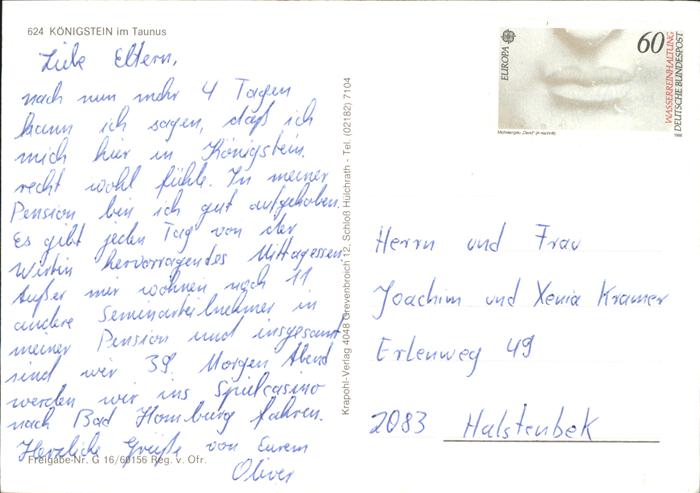 624 KÖNIGSTEIN im Taunus
Liebe Eltern,
nach nun mehr 4 Tagen
kann ich sagen, daß ich
mich hier in Königstein
recht wohl fühle. In meiner
Pension bin ich gut aufgehoben.
Es gibt jeden Tag von der
Wirtin hervorragendes Mittagessen.
Außer mir wohnen noch 11
andere Seminarteilnehmer in
meiner Pension und insgesamt
sind wir 39. Morgen Abend
werden wir ins Spielcasino
nach Bad Homburg fahren.
Herzliche Grüße von Eurem
Oliver
Freigabe-Nr. G 16/60156 Reg. v. Ofr.
Krapohl-Verlag 4048 Grevenbroich 12, Schloß Hülchrath - Tel. (02182) 7104
EUROPA
60
WASSERREINHALTUNG
DEUTSCHE BUNDESPOST
Michelangelo, „David“ (Ausschnitt)
1986
Herrn und Frau
Joachim und Xenia Kramer
Erlenweg 49
2083 Halstenbek